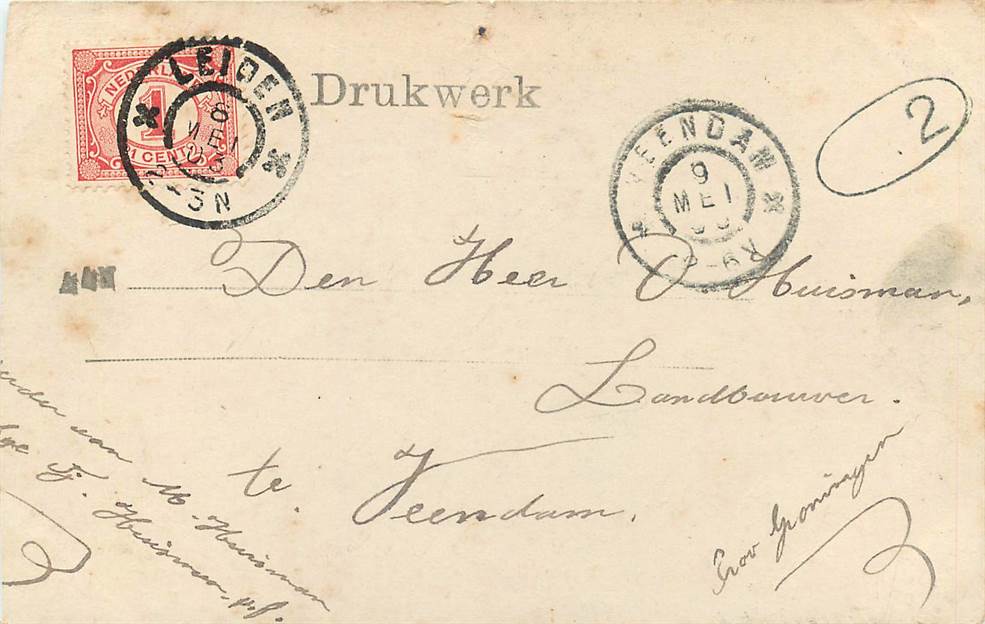 NEDERLAND
1
1 CENT
LEIDEN
8 MEI
Drukwerk
VEENDAM
9
MEI
2
Den Heer Huisman,
Landbouwer.
te Veendam.
Prov Groningen
van M. Huisman
Huisman